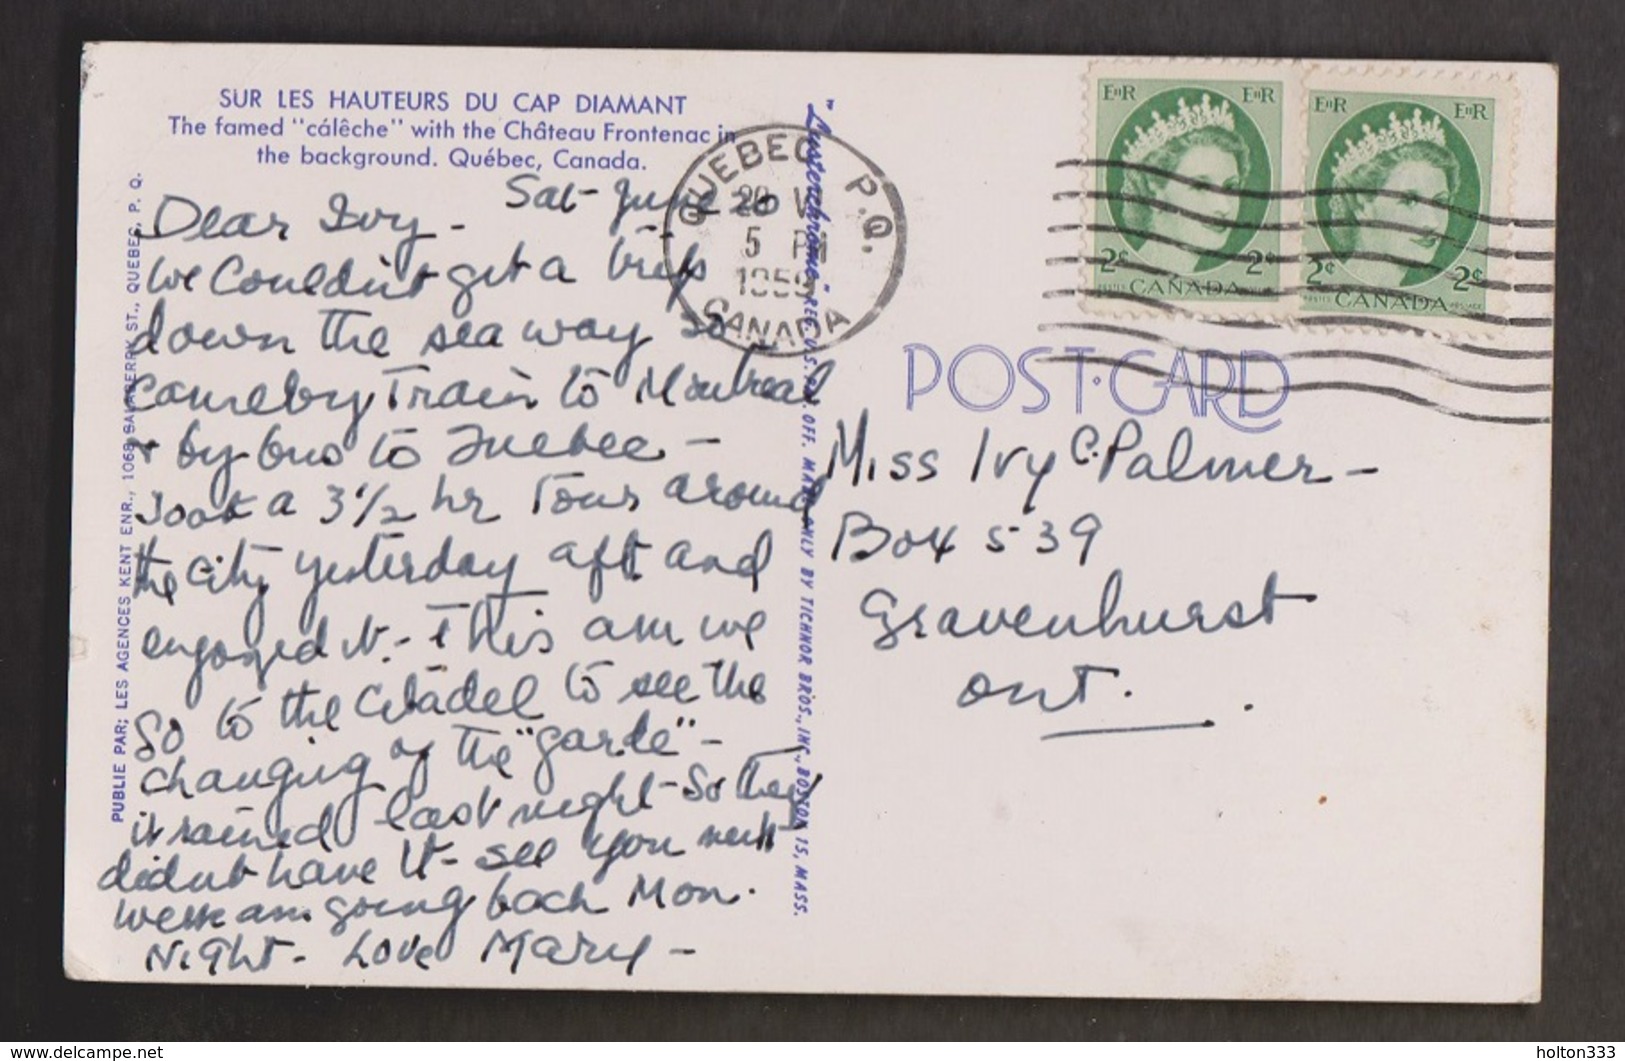 SUR LES HAUTEURS DU CAP DIAMANT
The famed "cálêche" with the Château Frontenac in
the background. Québec, Canada.
Sat- June 20
Dear Ivy -
We Couldn't get a trip
down the sea way so
came by Train to Montreal
+ by bus to Quebec -
Took a 3½ hr Tour around
the City yesterday aft and
enjoyed it. - This am we
go to the Citadel to see the
changing of the "garde" -
it rained last night - So they
didnt have it - see you next
week am going back Mon.
Night - Love Mary -
PUBLIE PAR; LES AGENCES KENT ENR., 1068 SALABERRY ST., QUEBEC, P. Q.
"Lusterchrome" REG. U.S. PAT. OFF. MADE ONLY BY TICHNOR BROS., INC., BOSTON 15, MASS.
QUEBEC P.Q.
5 PM
1959
CANADA
EIIR EIIR
2¢ 2¢
POSTES CANADA POSTAGE
EIIR EIIR
2¢ 2¢
POSTES CANADA POSTAGE
POST·CARD
Miss Ivy C. Palmer -
Box 539
Gravenhurst
Ont.
holton333
www.delcampe.net